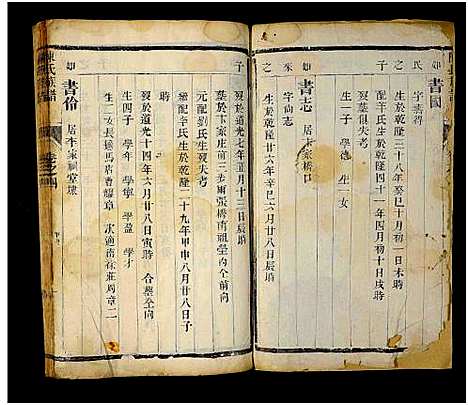 書國
字素得
生於乾隆三十八年癸巳十月初一日未時
配辛氏生於乾隆四十一年四月初十日戌時
歿葬俱失考
生一子 學德 生一女
書志 居卞家橋口
字尚志
生於乾隆廿六年辛巳六月廿八日辰時
歿於道光七年正月十三日辰時
葬於卞家庄前
元配劉氏生歿失考
繼配李氏生於乾隆二十九年甲申八月廿八日子
時
歿於道光十四年六月廿八日寅時 合葬
生四子 學年 學寧 學盈 學才
生二女長適馬店曹耀章 次適
書伦 居李家祠堂
陳氏族譜
卷之四